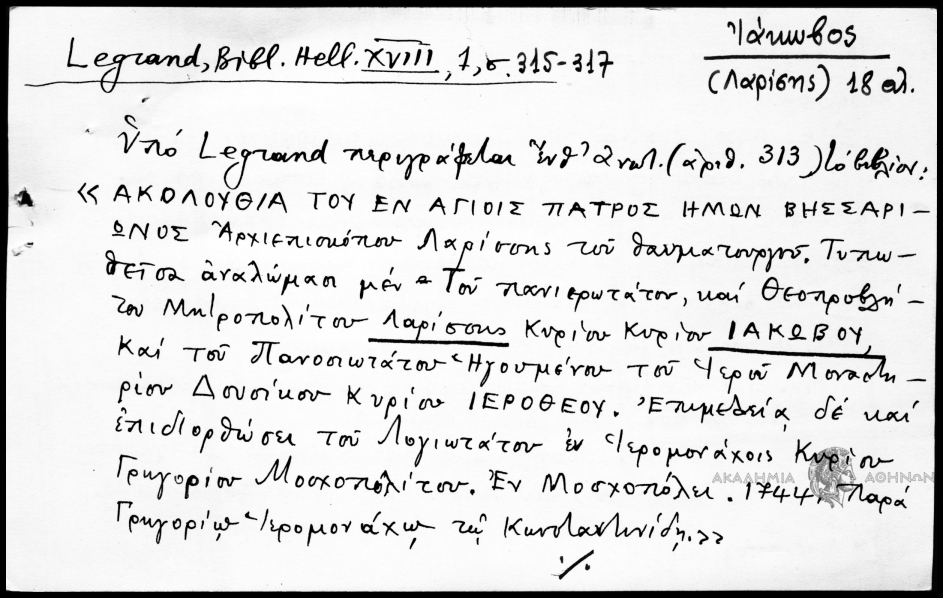 Ἰάκωβος
(Λαρίσης) 18 αἰ.
Legrand, Bibl. Hell. XVIII, 1, σ. 315-317
Ὑπό Legrand περιγράφεται (ἀριθ. 313) τό βιβλίον:
« ΑΚΟΛΟΥΘΙΑ ΤΟΥ ΕΝ ΑΓΙΟΙΣ ΠΑΤΡΟΣ ΗΜΩΝ ΒΗΣΣΑΡΙ–
ΩΝΟΣ Ἀρχιεπισκόπου Λαρίσσης τοῦ θαυματουργοῦ. Τυπω–
θεῖσα ἀναλώμασι μέν Τοῦ πανιερωτάτου, καί Θεοπροβλή–
του Μητροπολίτου Λαρίσσης Κυρίου Κυρίου ΙΑΚΩΒΟΥ,
Καί τοῦ Πανοσιωτάτου Ἡγουμένου τοῦ Ἱεροῦ Μοναστη–
ρίου Δουσίκου Κυρίου ΙΕΡΟΘΕΟΥ. Ἐπιμελείᾳ δέ καί
ἐπιδιορθώσει τοῦ Λογιωτάτου ἐν Ἱερομονάχοις Κυρίου
Γρηγορίου Μοσχοπολίτου. Ἐν Μοσχοπόλει. 1744. Παρά
Γρηγορίῳ Ἱερομονάχῳ τῷ Κωνσταντινίδῃ.»
./.
ΑΚΑΔΗΜΙΑ ΑΘΗΝΩΝ